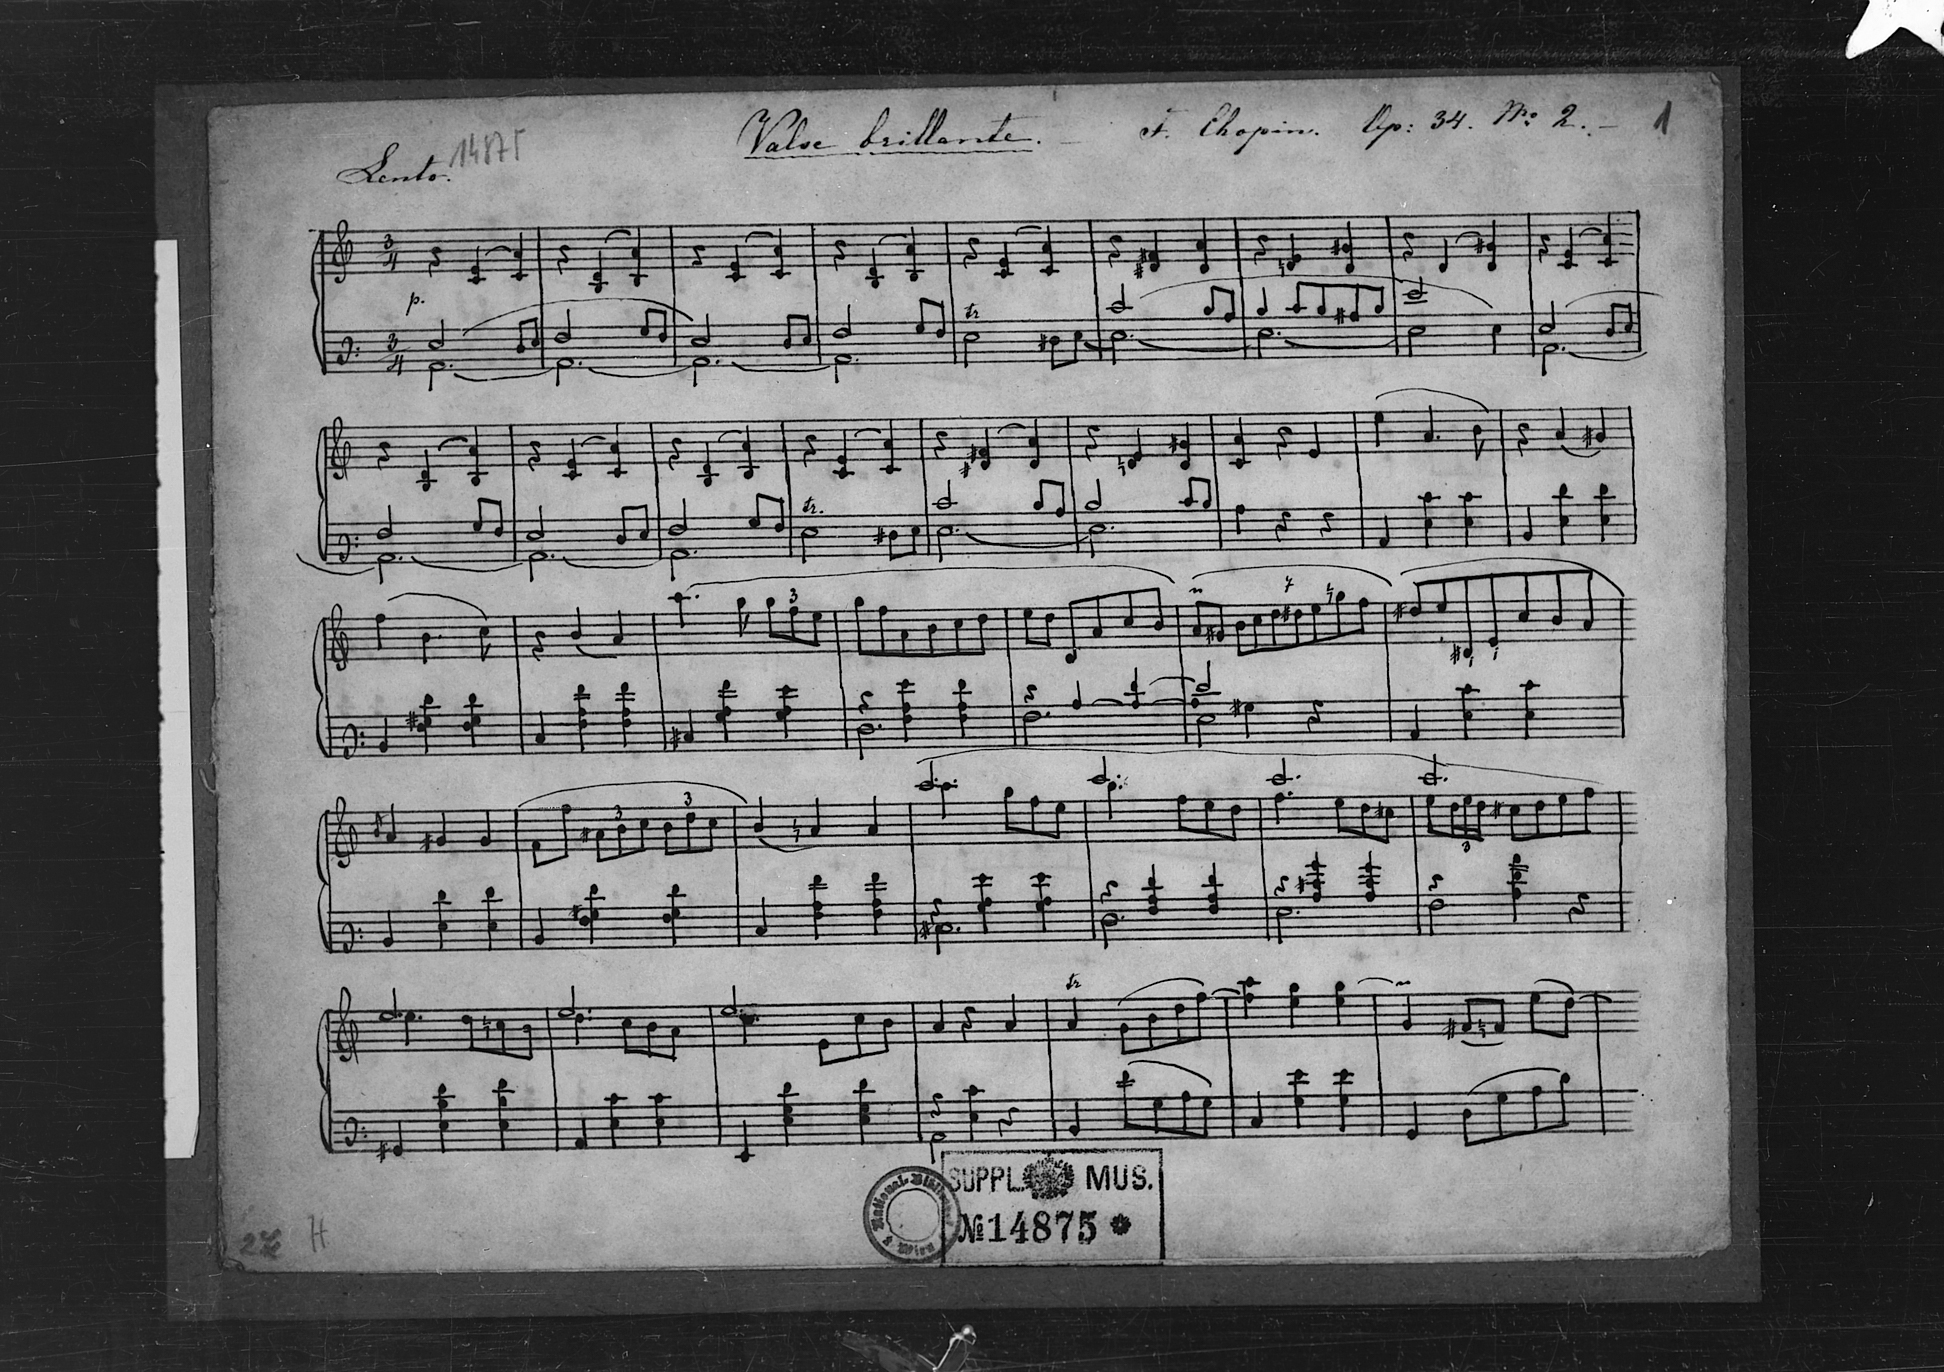 Valse brillante. F. Chopin. Op: 34. No 2. 1
14875
Lento.
3/4
p.
3/4
tr
tr.
3
7
3
3
3
tr
SUPPL. MUS.
No 14875 *
National-Bibliothek
Wien
H